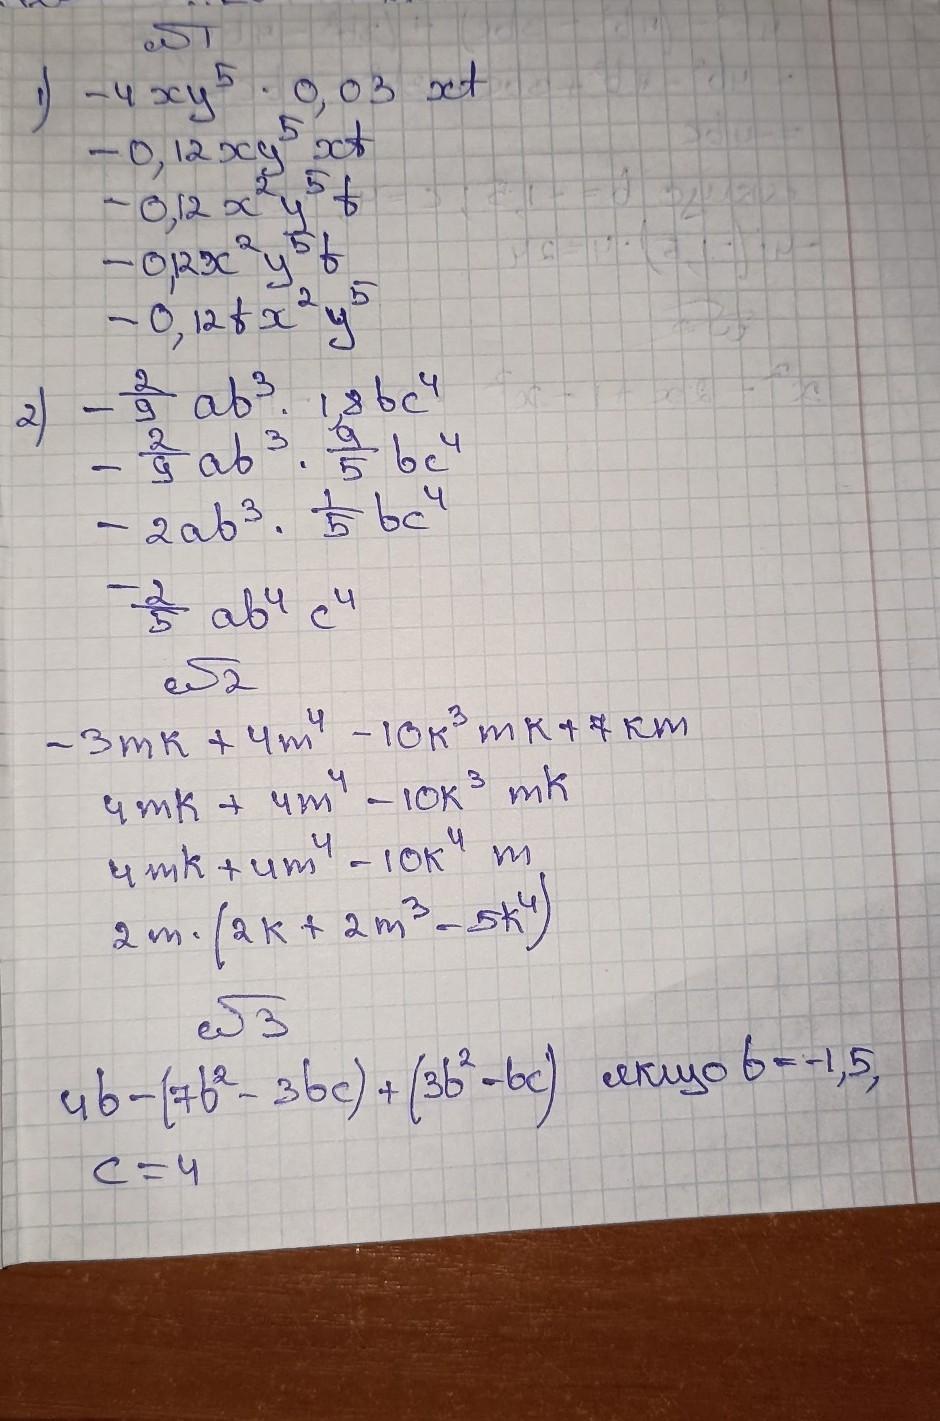 №1
1) -4xy⁵ · 0,03 xt
-0,12xy⁵xt
-0,12x²y⁵t
-0,12x²y⁵t
-0,12tx²y⁵
2) -2/9 ab³ · 1,8bc⁴
-2/9 ab³ · 9/5 bc⁴
-2ab³ · 1/5 bc⁴
-2/5 ab⁴c⁴
№2
-3mk + 4m⁴ - 10k³mk + 7km
4mk + 4m⁴ - 10k³ mk
4mk + 4m⁴ - 10k⁴ m
2m · (2k + 2m³ - 5k⁴)
№3
4b - (7b² - 3bc) + (3b² - bc) якщо b = -1,5,
c = 4